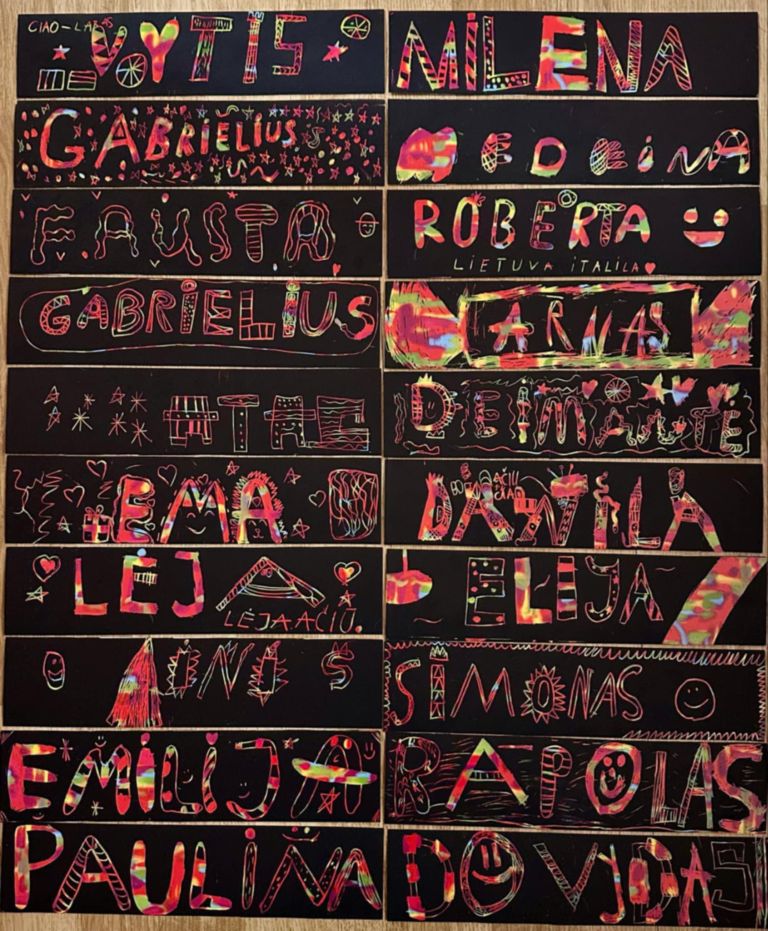 CIAO-LABAS
VYTIS
MiLENA
GABRiELiUS
EDEiNA
FAUSTA
ROBERTA
LIETUVA iTALiLA
GABRiELiUS
ARNAS
DEIMANTĖ
EMA
LĖJA
LĖJA AČIŪ.
ELiJA
AINIS
SiMONAS
EMiLiJA
RAPOLAS
PAULiNA
DOVyDAS